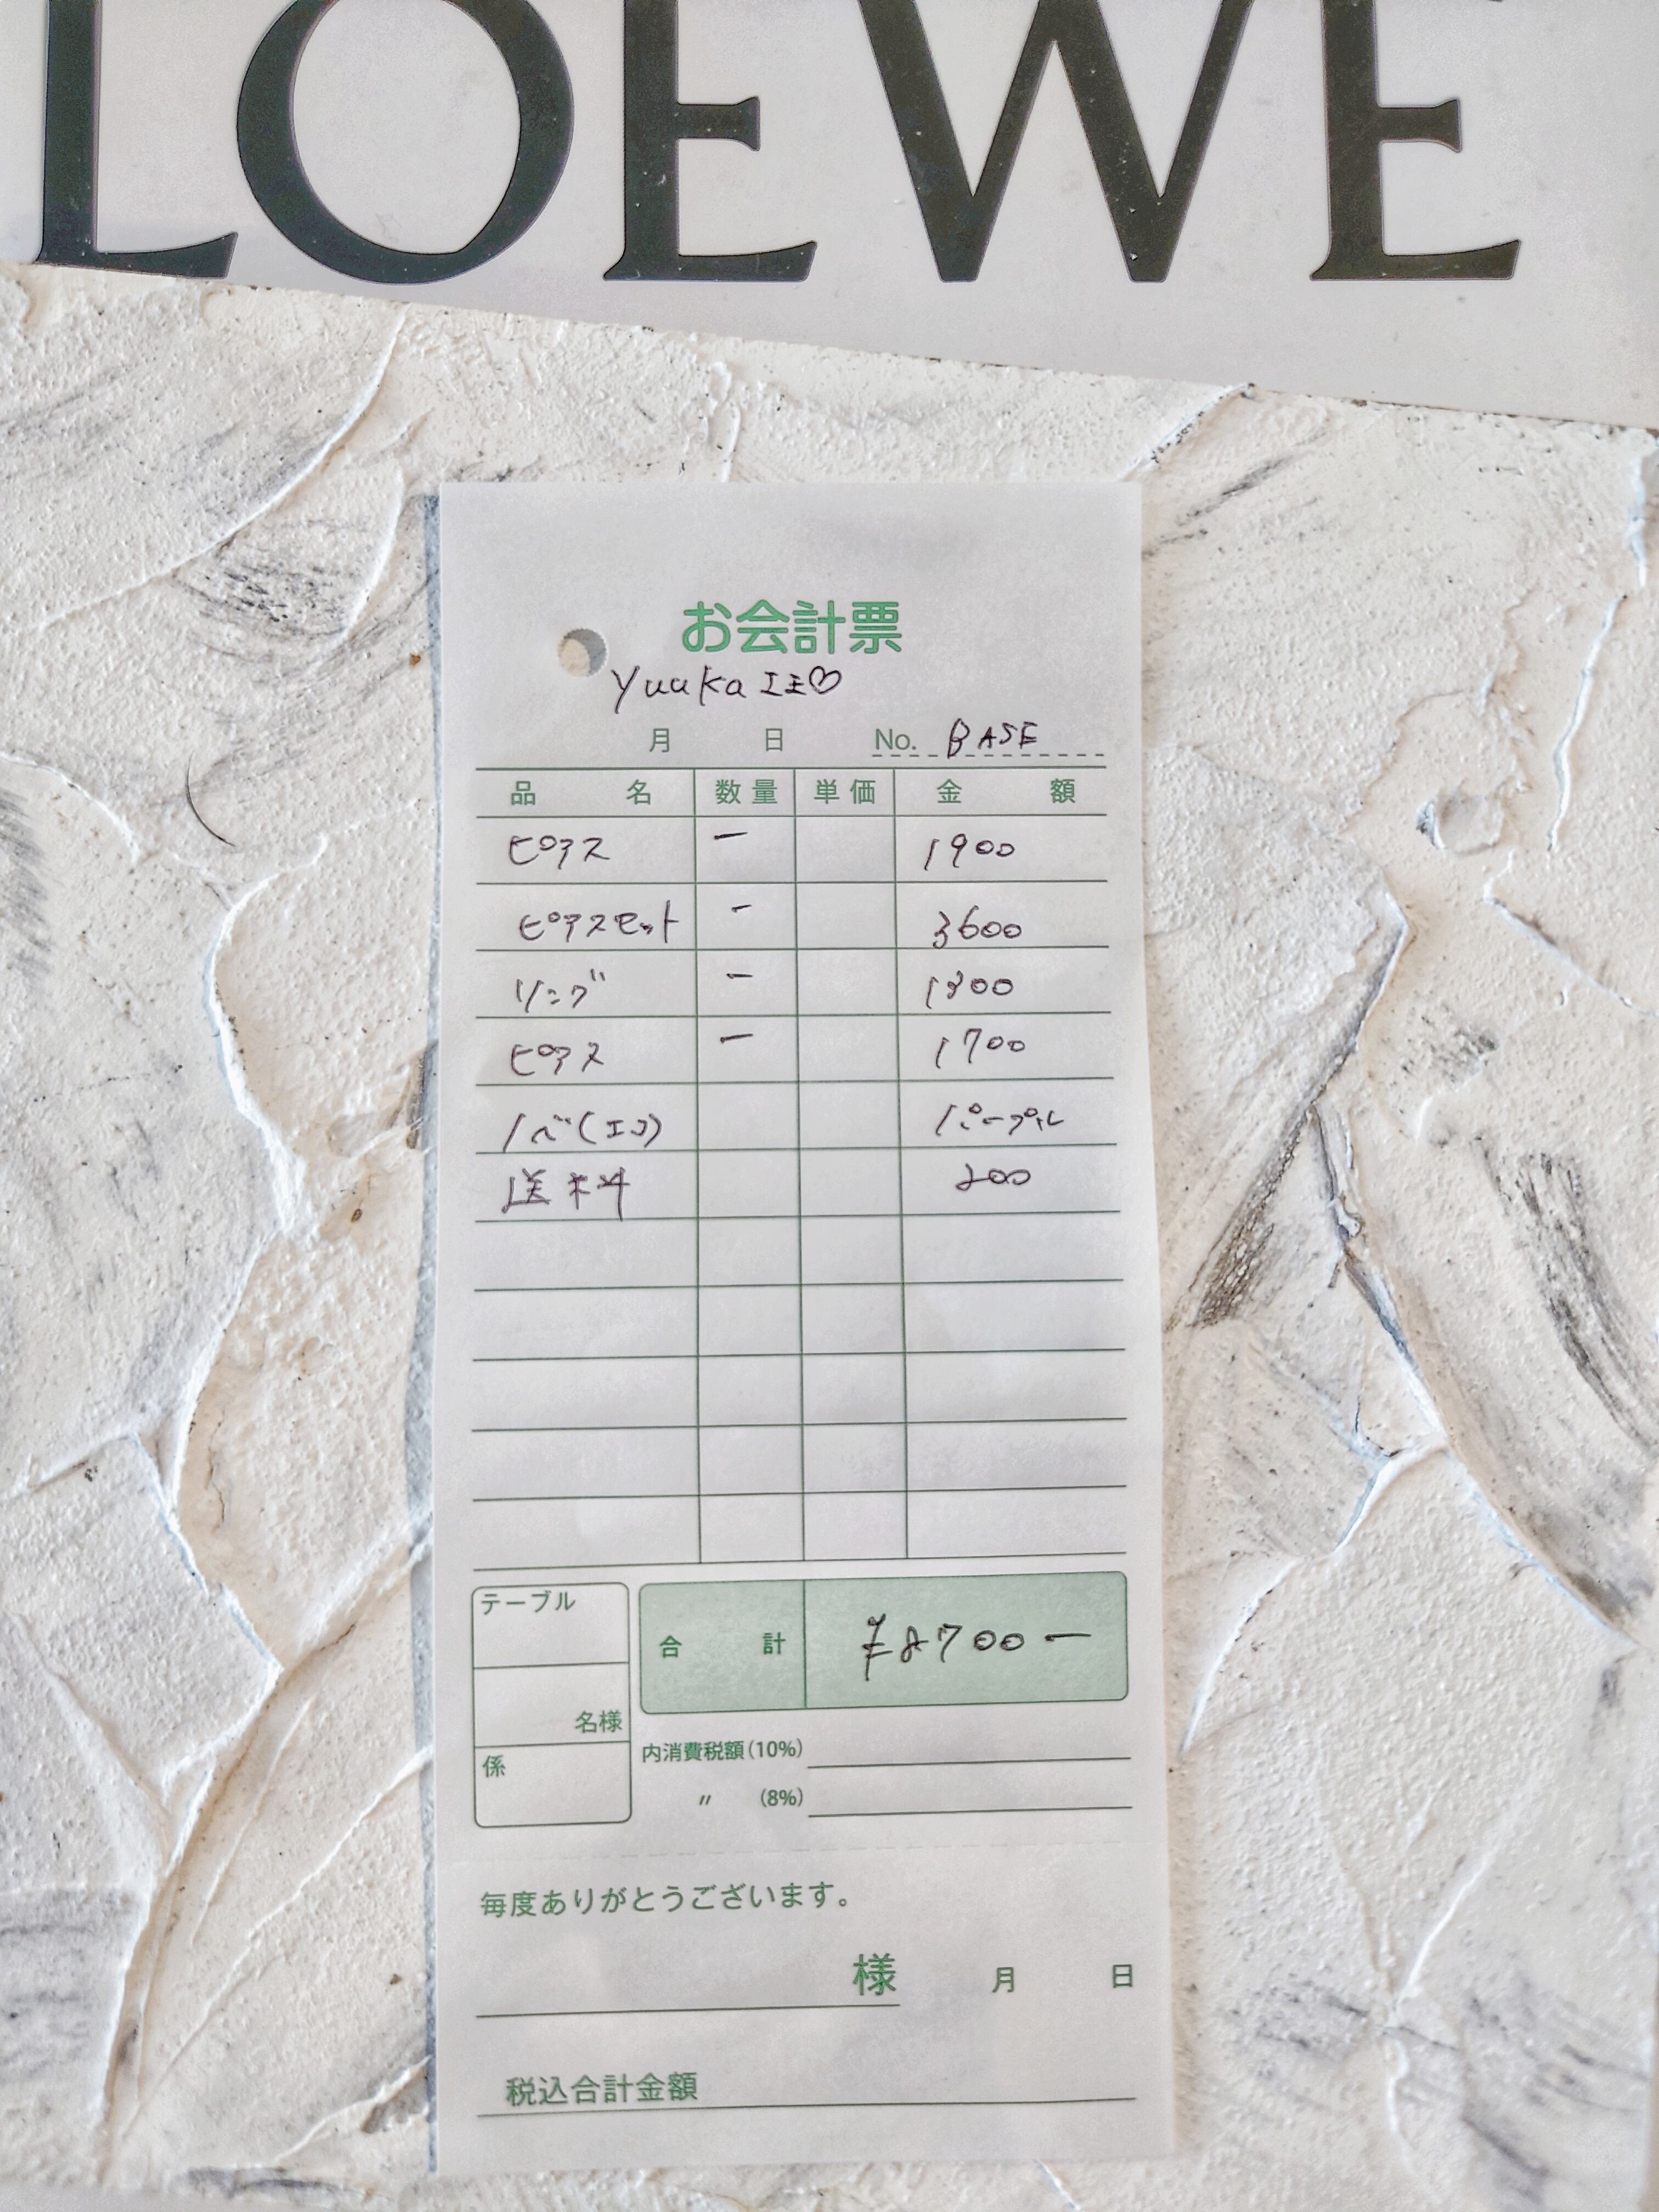 LOEWE
お会計票
Yuuka ♡
月 日 No. BASE
品名 数量 単価 金額
ピアス 一 1900
ピアスセット 一 3600
リング 一 1300
ピアス 一 1700
ノベ(エコ) パープル
送料 200
テーブル
合計 ¥8700ー
名様
係
内消費税額(10%)
〃 (8%)
毎度ありがとうございます。
様 月 日
税込合計金額